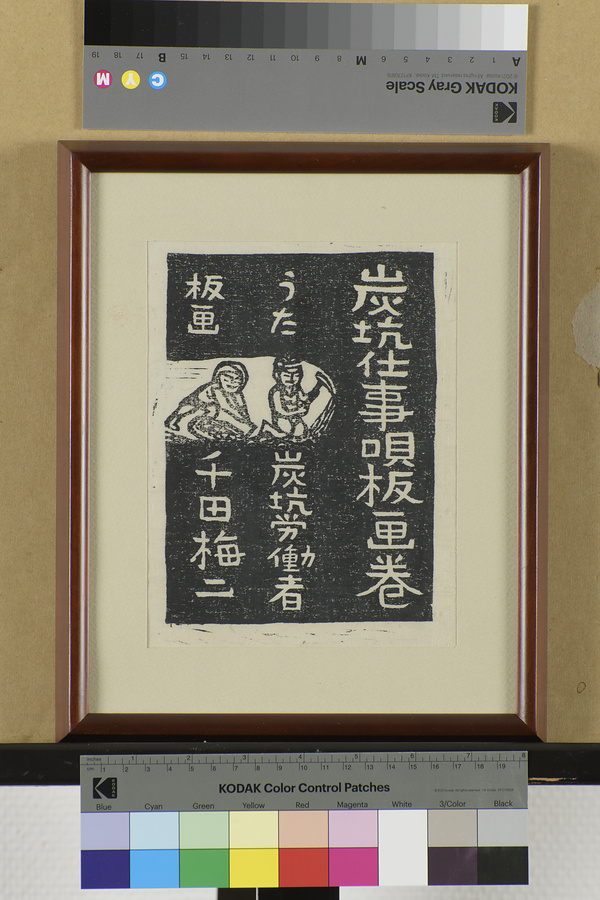 KODAK Gray Scale
A 1 2 3 4 5 6 M 8 9 10 11 12 13 14 15 B 17 18 19
C Y M
KODAK
炭坑仕事唄板画巻
うた 炭坑労働者
板画 千田梅二
inches 1 2 3 4 5 6 7 8
cm 1 2 3 4 5 6 7 8 9 10 11 12 13 14 15 16 17 18 19
KODAK
KODAK Color Control Patches
Blue Cyan Green Yellow Red Magenta White 3/Color Black